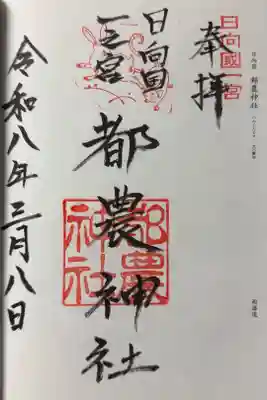 日向国 都農神社
日向國一宮
奉拝
日向国
一之宮
都農神社
都農神社
令和八年三月八日